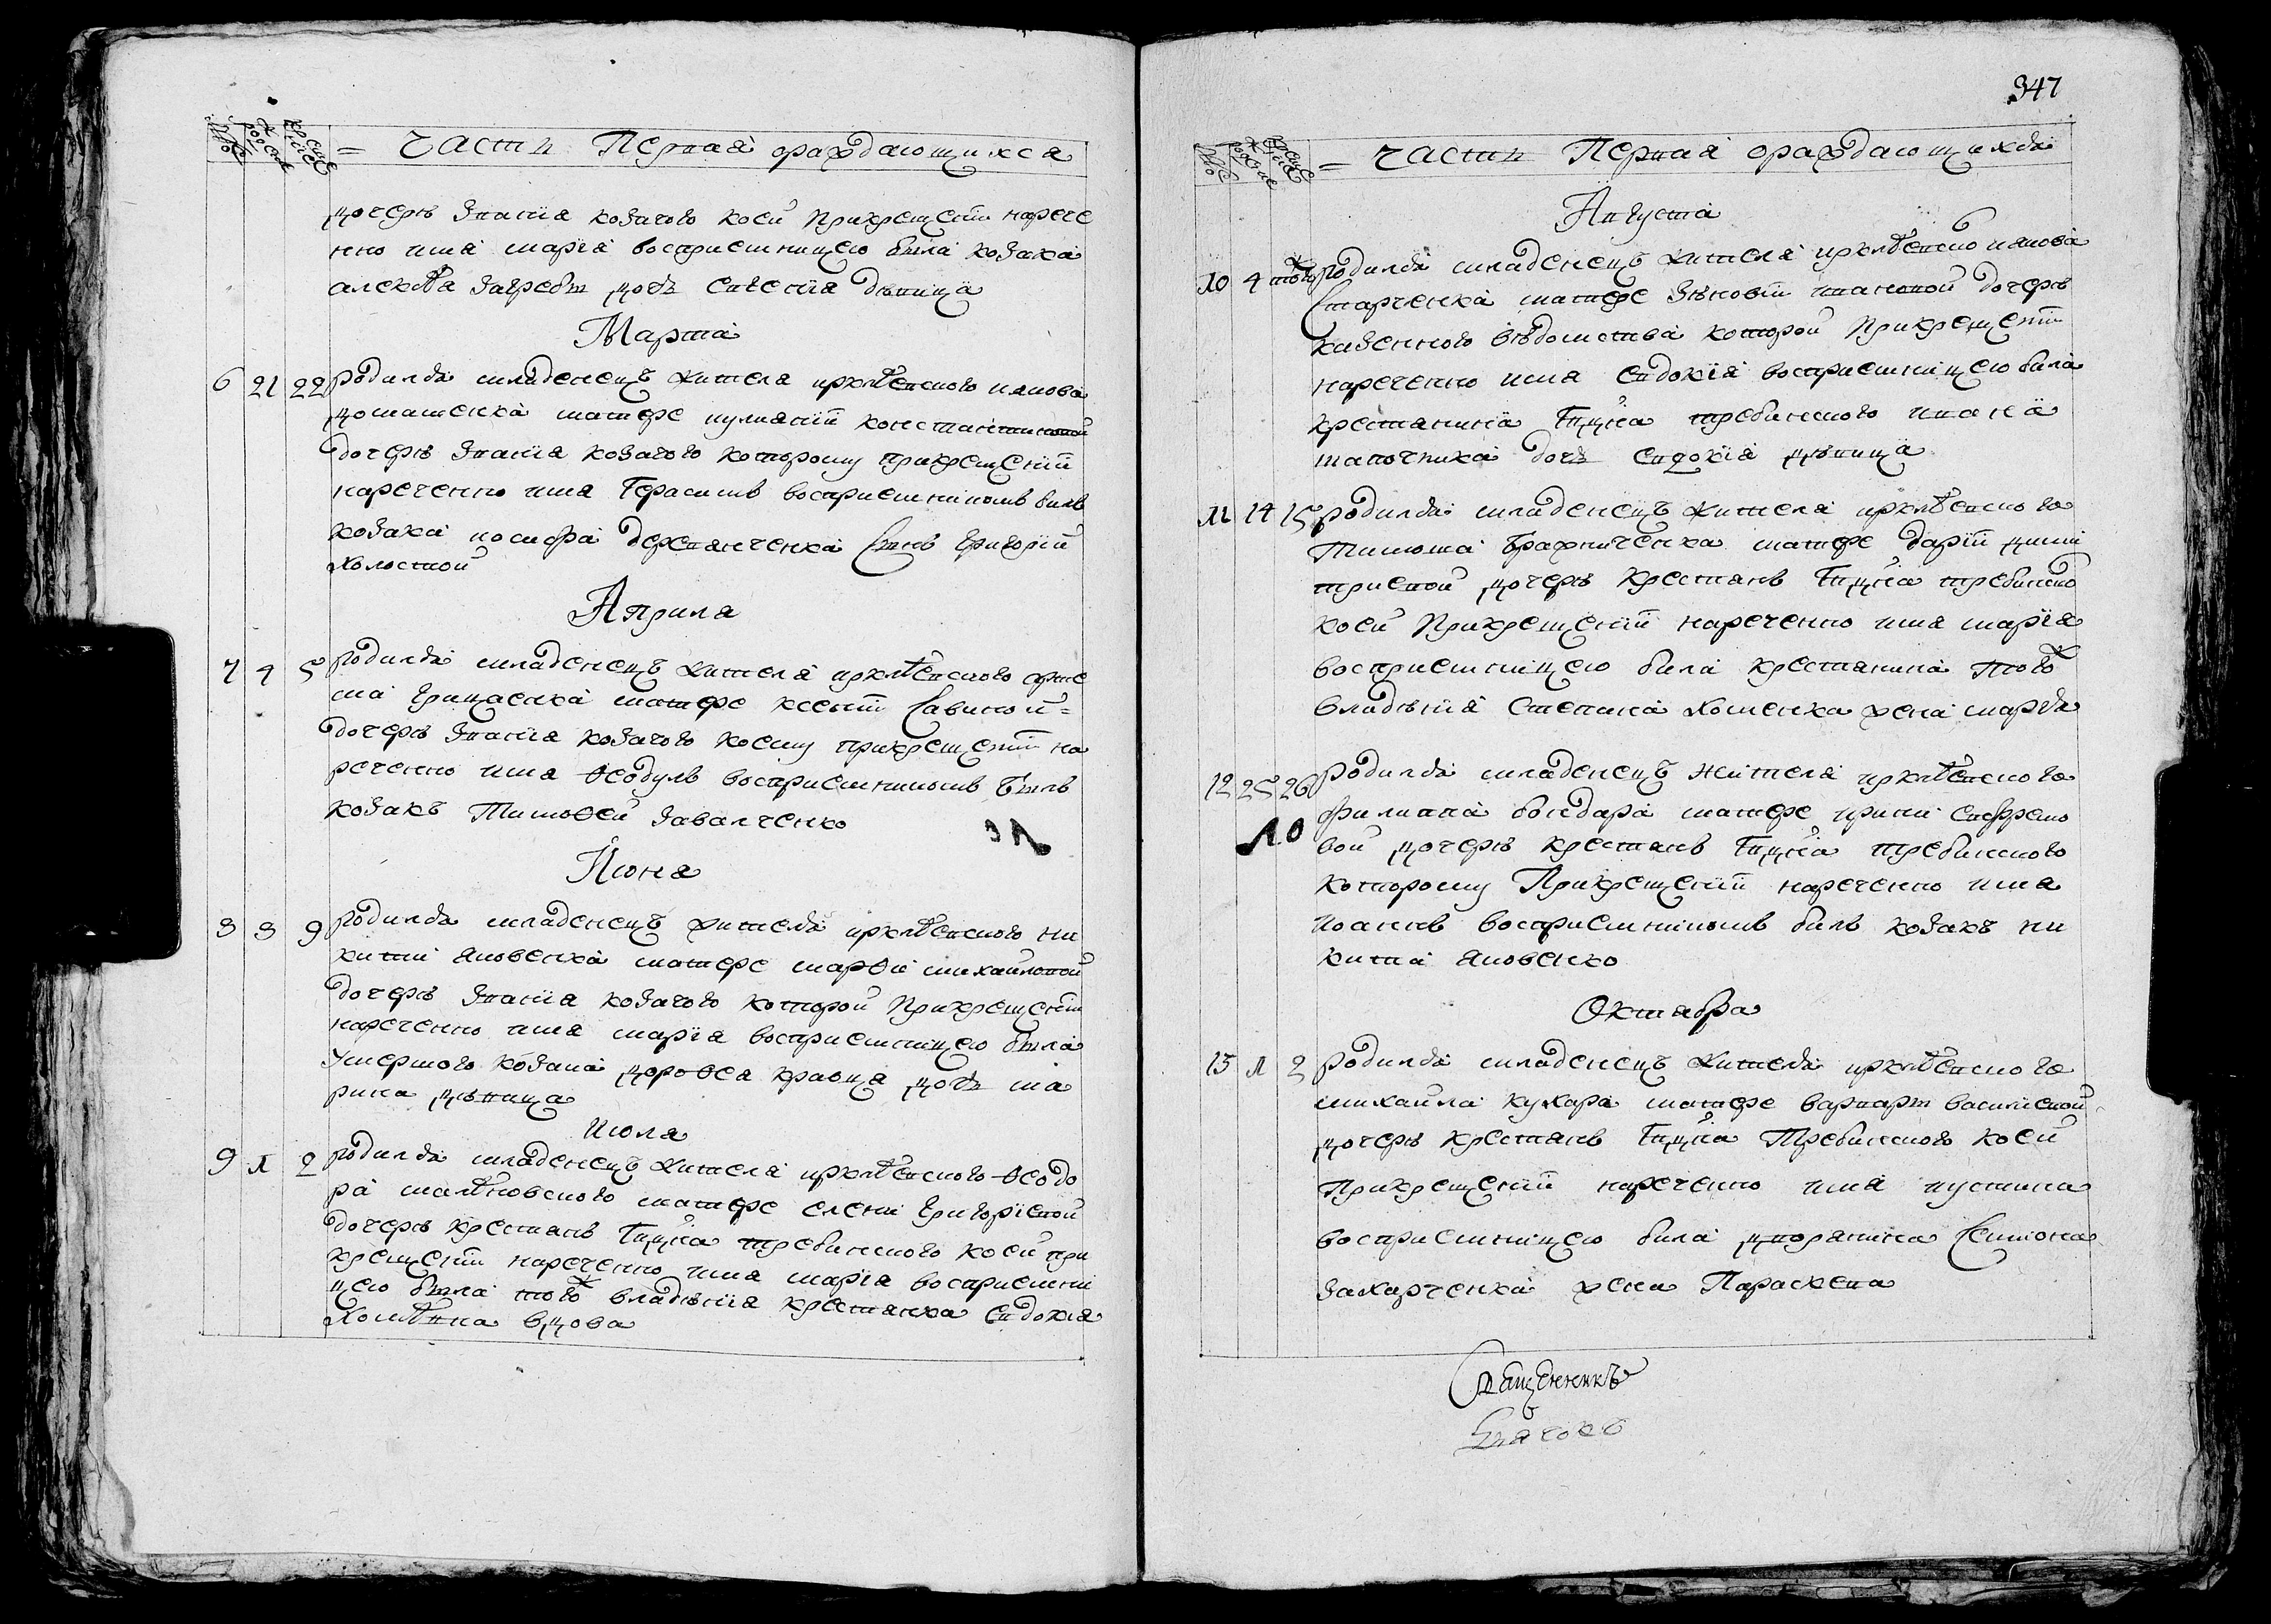 = Части Первая ораждающихся
дочерѣ званїя козачого коей прикрещенїи нарече
нно имя марїя восприемницею была козака
алексѣя дочь дѣвица
Марта
6 21 22 родился младенецъ жителя ирклѣевского иакова
домашенка матере иулианїи константиновой
дочерѣ званїя козачого которому прикрещенїи
нареченно имя Герасимъ восприемникомъ билъ
козака иосифа сынъ григорїй
холостой
Априля
7 4 5 родился младенецъ жителя ирклѣевского
грицаенка матере ксенїи савиной=
дочерѣ званїя козачого коему прикрещенїи на
реченно имя Ѳеодулъ восприемникомъ былъ
козакъ Тимоѳей Завалченко
Июня
8 8 9 родился младенецъ жителя ирклѣевского ни
кити яковенка матере марѳи михайловой
дочерѣ званїя козачого которой прикрещенїи
нареченно имя марїя восприемницею была
умершого козака дороѳея кравця дочь ма
рина дѣвица
Июля
9 1 2 родился младенецъ жителя ирклѣевского Ѳеодо
ра матере елени григорїевой
дочерѣ крестянъ требинского коей при
крещенїи нареченно имя марїя восприемни
цею была тогож владѣнїя крестянка евдокїя
вдова
347
= Части Первая ораждающихся
Августа
10 4 тогож родился младенецъ жителя ирклѣевского иакова
Старченка матере зѣновїи ивановой дочерѣ
казенного вѣдомства которой прикрещенїи
нареченно имя евдокїя восприемницею била
крестянина требинского ивана
шаповника дочь евдокїя дѣвица
11 14 15 родился младенецъ жителя ирклѣевского
Тимоша Бражниченка матере дарїи дими
триевой дочерѣ крестянъ требинско
коей прикрещенїи нареченно имя марїя
восприемницею била крестянина тогож
владѣнїя Степана хоменка жена марѳа
12 25 26 родился младенецъ жителя ирклѣевского
филипа бондара матере ирини евфремо
вой дочерѣ крестянъ требинского
которому прикрещенїи нареченно имя
иоаннъ восприемникомъ билъ козакъ ни
кита яковенко
Октября
13 1 2 родился младенецъ жителя ирклѣевского
михаила кухара матере варвари василиевой
дочерѣ крестянъ Требинского коей
прикрещенїи нареченно имя иустина
восприемницею била дворянина Семиона
Захарченка жена Параскева
Священникъ